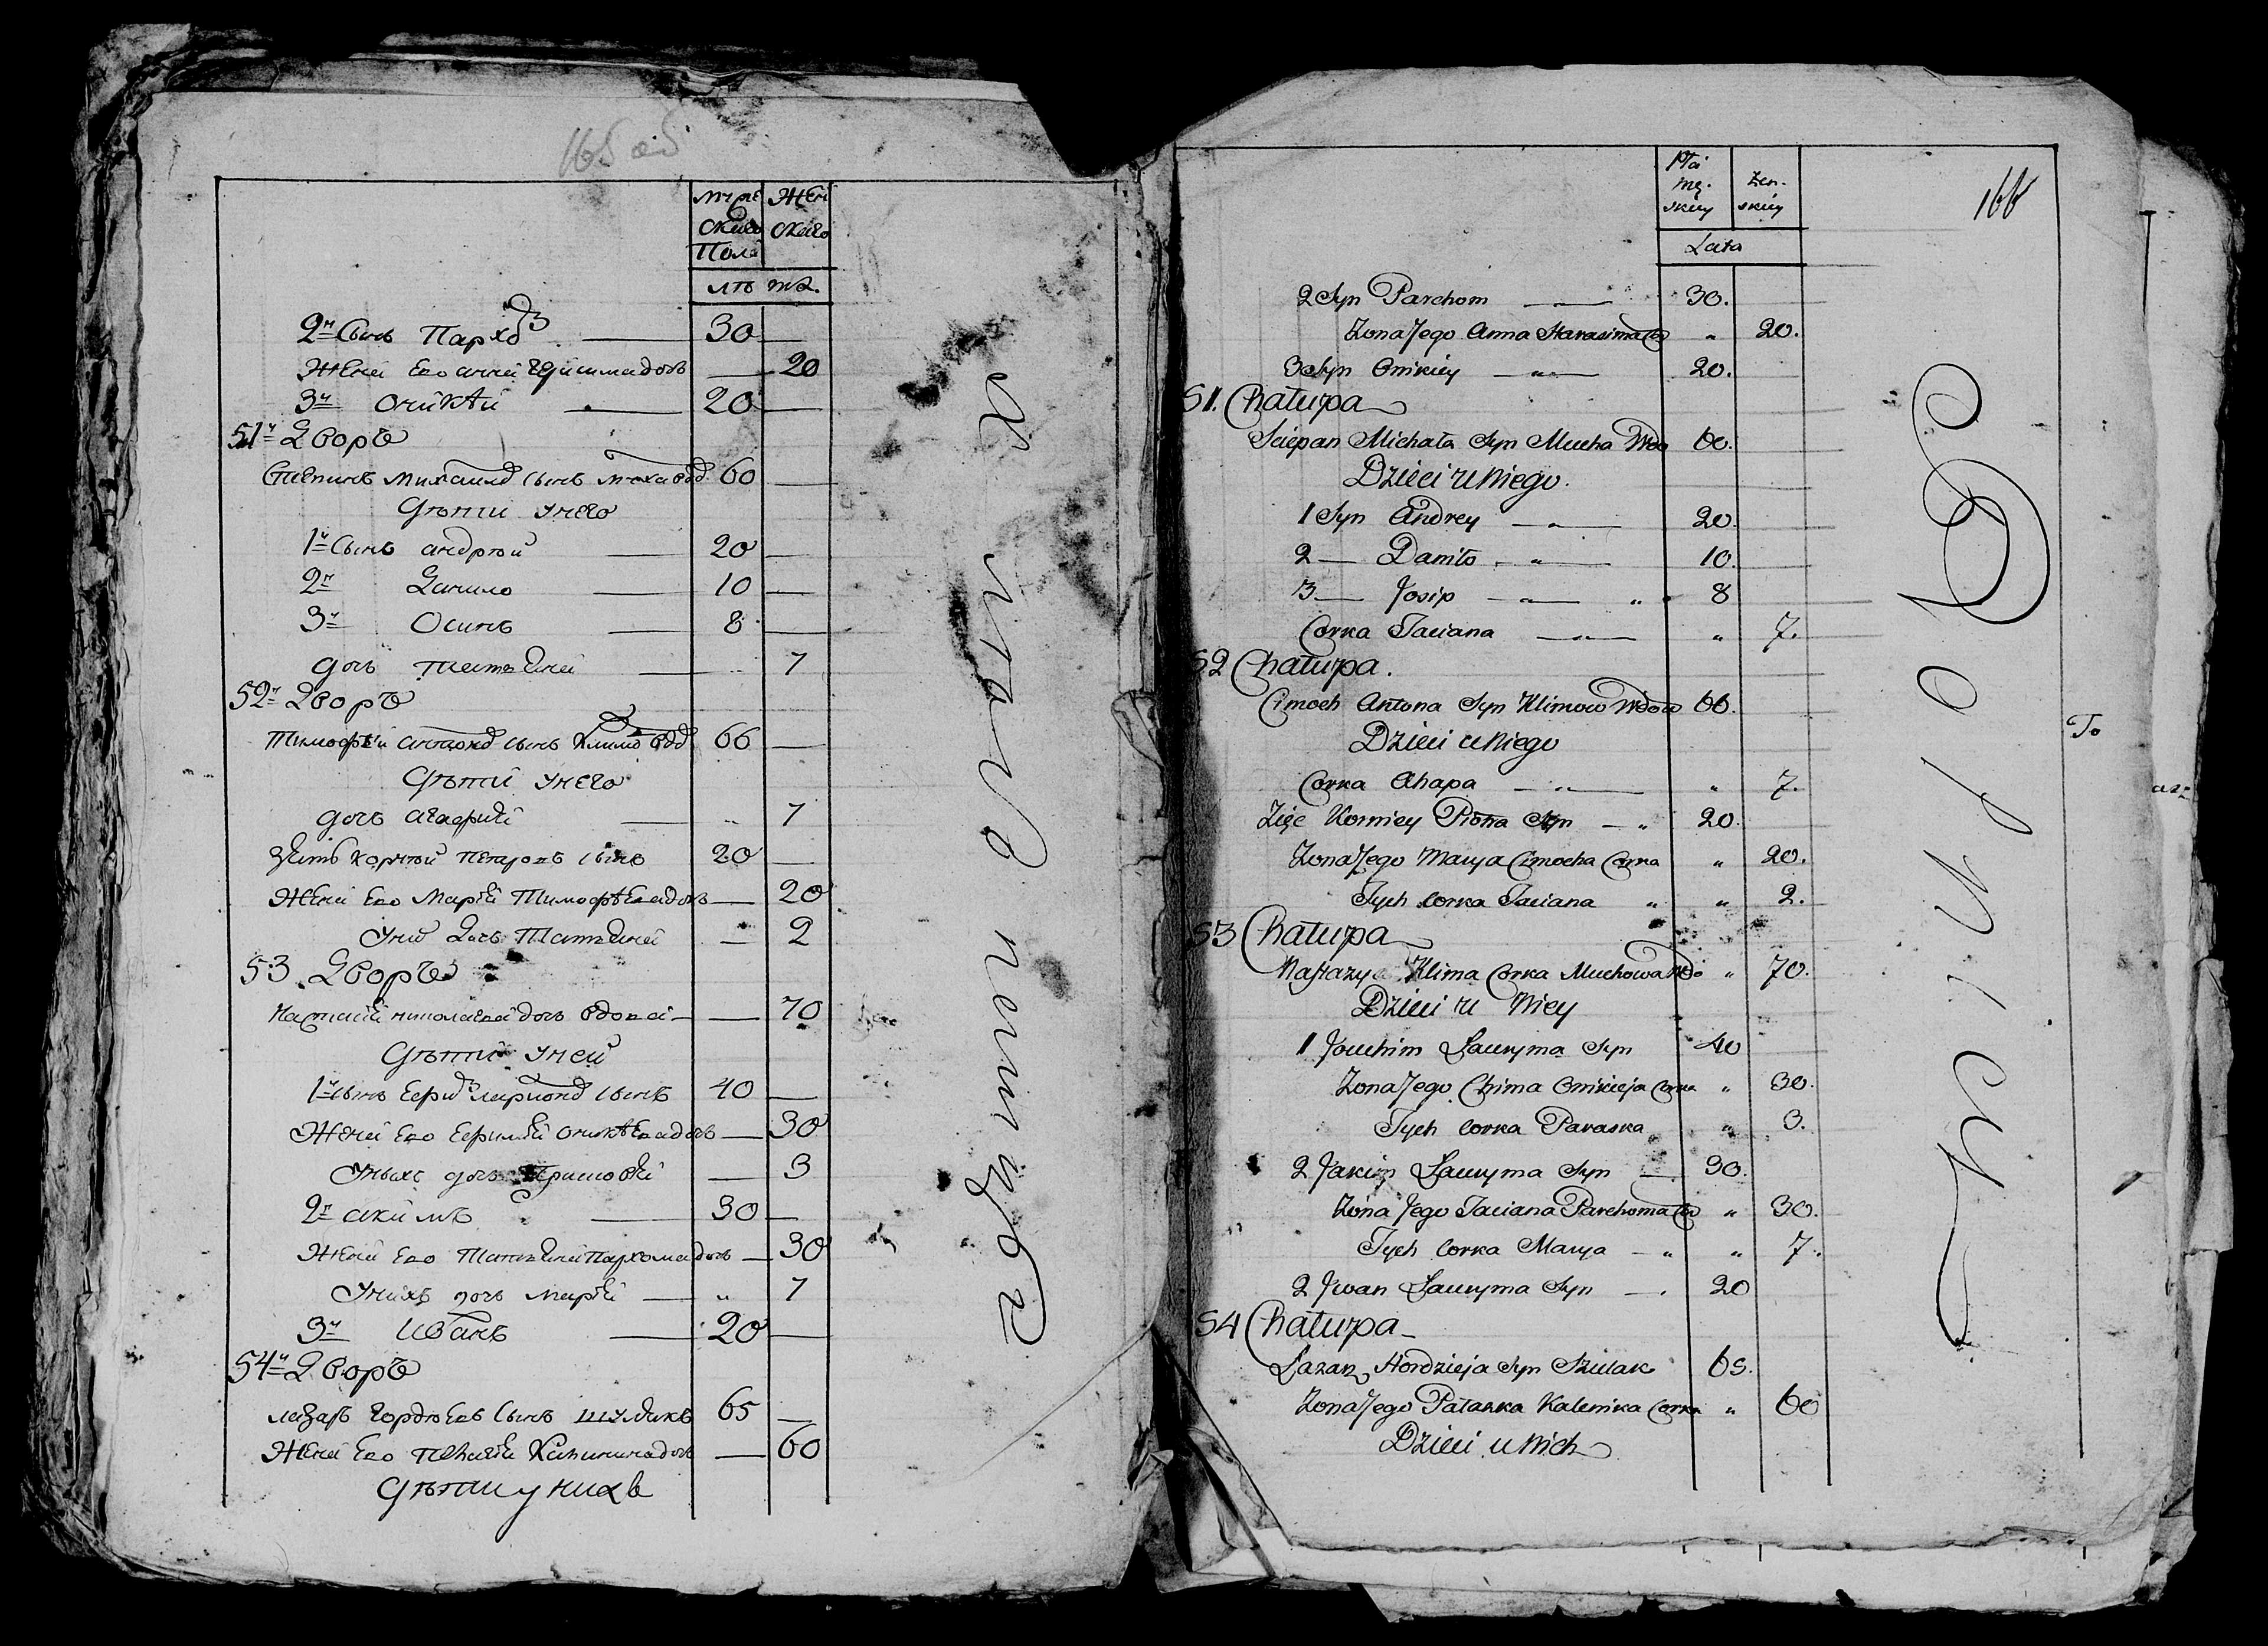 165 об
мужескаго Пола
Женскаго
лѣта.
2й Сынъ Пархомъ 30
Жена Ево анна Герасимадочь 20
3й Оникѣй 20
51й Дворъ
Степанъ михаиловъ сынъ муха вдов. 60
Дѣти унего
1й Сынъ андрѣй 20
2й Данило 10
3й Осипъ 8
дочь татьяна 7
52й Дворъ
Тимофѣй антоновъ сынъ Климовъ вдов. 66
Дѣти унего
дочь агафия 7
зять корнѣй петровъ сынъ 20
Жена Ево Мария Тимофѣевадочь 20
Унихъ Дочь Татьяна 2
53 Дворъ
Настасия николаева дочь вдова 70
Дѣти уней
1й сынъ Ефимъ ларионовъ сынъ 40
Жена Ево Ефимия оникѣевадочь 30
Уныхъ дочь 3
2й акимъ 30
Жена Ево Татьяна Пархомадочь 30
Унихъ дочь Мария 7
3й Иванъ 20
54й Дворъ
лазаръ гордѣевъ Сынъ шулякъ 65
Жена Ево пелагия Калининадочь 60
Дѣти у нихъ
Płci
mę-
skiey
żen-
skiey
166
Lata
2 Syn Parchom 30.
Zona Jego Anna Harasima Co „ 20.
3 Syn Onikiey „ 20.
51. Chałupa
Sciepan Michała Syn Mucha Wdo 60.
Dzieci u Niego.
1 Syn Andrey „ 20.
2 — Daniło „ 10.
3 — Josip „ „ 8
Corka Taciana „ „ 7.
52 Chałupa.
Cimoch Antona Syn Klimow Wdow 66.
Dzieci u Niego
Corka Ahapa „ „ 7.
Zięc Korniey Piotra Syn „ 20.
Zona Jego Marya Cimocha Corka „ 20.
Tych Corka Taciana „ „ 2.
53 Chałupa
Nastazya Klima Corka Muchowa Wdo „ 70.
Dzieci u Niey
1 Jouchim Lauryma Syn 40
Zona Jego Chima Onikieja Corka „ 30.
Tych Corka Paraska „ 3.
2 Jakim Lauryma Syn 30.
Zona Jego Taciana Parchoma Co „ 30.
Tych Corka Marya „ „ 7.
2 Jwan Lauryma Syn 20
54 Chałupa
Lazarz Hordzieja Syn Szulak 65.
Zona Jego Pałaska Kalenika Corka „ 60
Dzieci u Nich
To